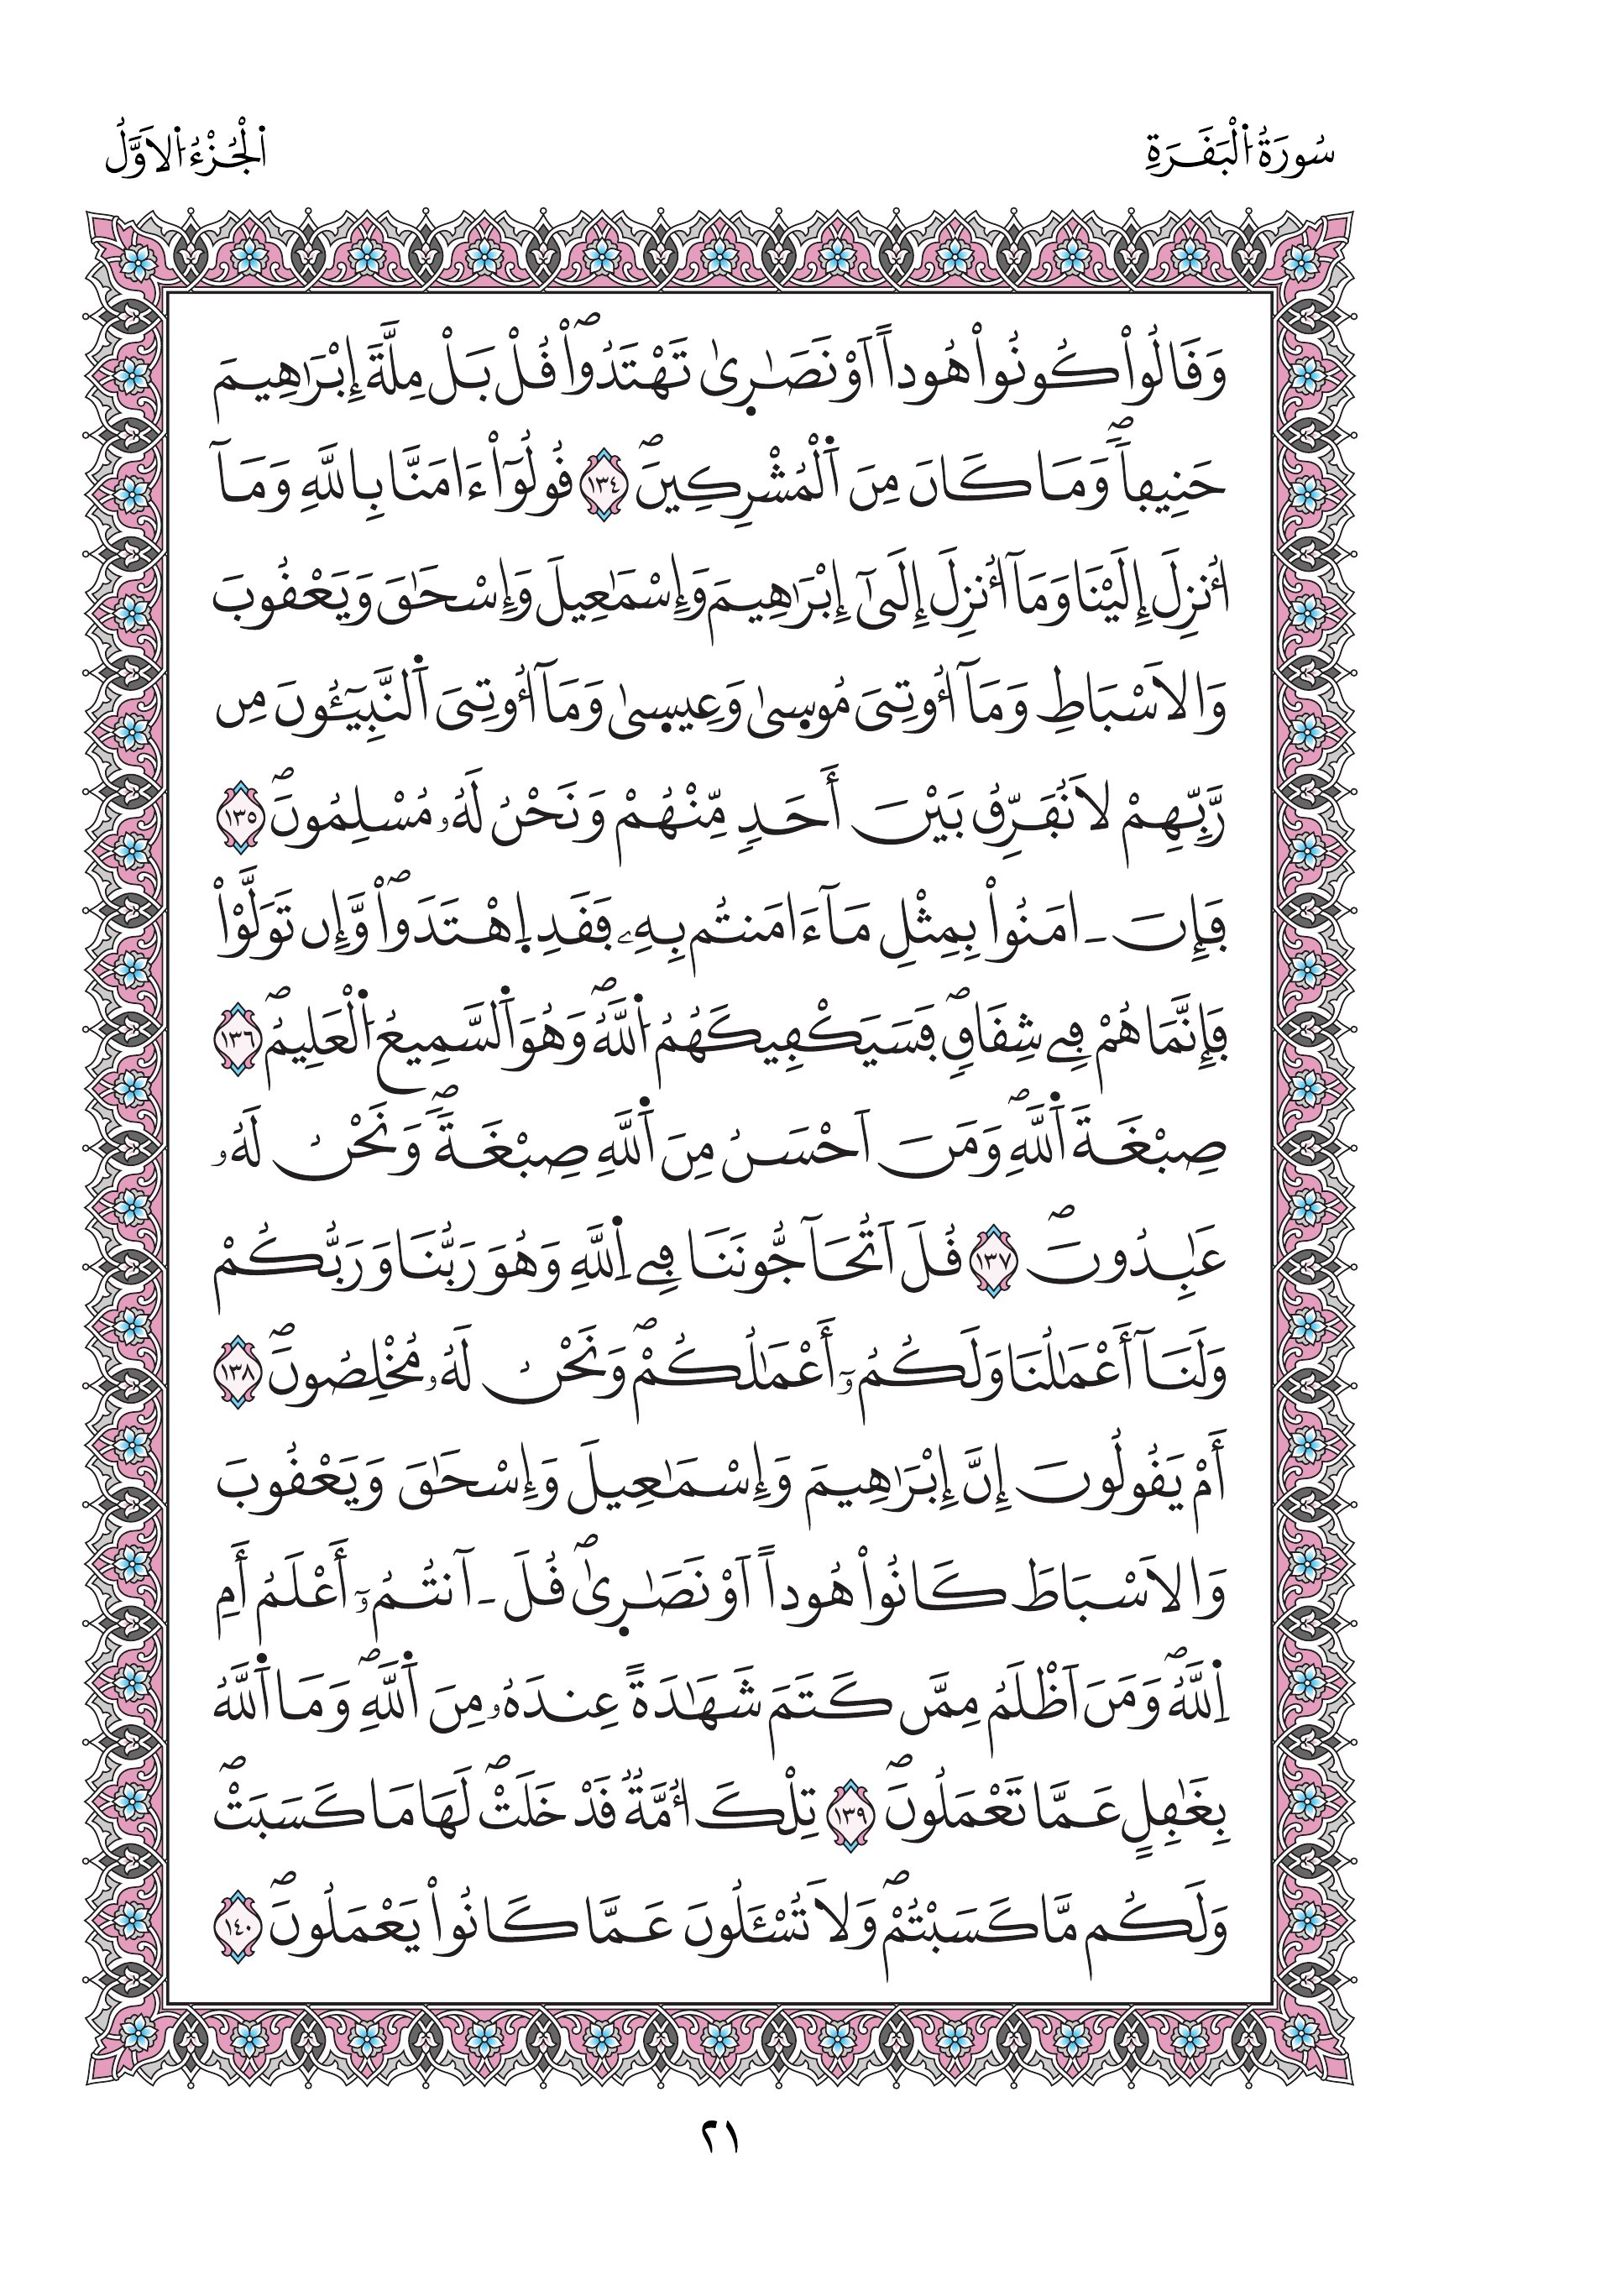 سُورَةُ اُ۬لْبَقَرَةِ
اَ۬لْجُزْءُ اُ۬لَاوَّلُ
وَقَالُواْ كُونُواْ هُوداً اَوْ نَصَٰر۪ىٰ تَهْتَدُواْۖ قُلْ بَلْ مِلَّةَ إِبْرَٰهِيمَ
حَنِيفاٗۖ وَمَا كَانَ مِنَ اَ۬لْمُشْرِكِينَۖ ١٣٤ قُولُوٓاْ ءَامَنَّا بِاللَّهِ وَمَآ
أُنزِلَ إِلَيْنَا وَمَآ أُنزِلَ إِلَىٰٓ إِبْرَٰهِيمَ وَإِسْمَٰعِيلَ وَإِسْحَٰقَ وَيَعْقُوبَ
وَالَاسْبَاطِ وَمَآ أُوتِيَ مُوس۪ىٰ وَعِيس۪ىٰ وَمَآ أُوتِيَ اَ۬لنَّبِيٓـُٔونَ مِن
رَّبِّهِمْ لَا نُفَرِّقُ بَيْنَ أَحَدٖ مِّنْهُمْ وَنَحْنُ لَهُۥ مُسْلِمُونَۖ ١٣٥
فَإِنَ اٰمَنُواْ بِمِثْلِ مَآ ءَامَنتُم بِهِۦ فَقَدِ اِ۪هْتَدَواْۖ وَّإِن تَوَلَّوْاْ
فَإِنَّمَا هُمْ فِے شِقَاقٖۖ فَسَيَكْفِيكَهُمُ اُ۬للَّهُۖ وَهُوَ اَ۬لسَّمِيعُ اُ۬لْعَلِيمُۖ ١٣٦
صِبْغَةَ اَ۬للَّهِۖ وَمَنَ اَحْسَنُ مِنَ اَ۬للَّهِ صِبْغَةٗۖ وَنَحْنُ لَهُۥ
عَٰبِدُونَۖ ١٣٧ قُلَ اَتُحَآجُّونَنَا فِے اِ۬للَّهِ وَهُوَ رَبُّنَا وَرَبُّكُمْ
وَلَنَآ أَعْمَٰلُنَا وَلَكُمُۥٓ أَعْمَٰلُكُمْۖ وَنَحْنُ لَهُۥ مُخْلِصُونَۖ ١٣٨
أَمْ يَقُولُونَ إِنَّ إِبْرَٰهِيمَ وَإِسْمَٰعِيلَ وَإِسْحَٰقَ وَيَعْقُوبَ
وَالَاسْبَاطَ كَانُواْ هُوداً اَوْ نَصَٰر۪ىٰۖ قُلَ آنتُمُۥٓ أَعْلَمُ أَمِ
اِ۬للَّهُۖ وَمَنَ اَظْلَمُ مِمَّن كَتَمَ شَهَٰدَةً عِندَهُۥ مِنَ اَ۬للَّهِۖ وَمَا اَ۬للَّهُ
بِغَٰفِلٍ عَمَّا تَعْمَلُونَۖ ١٣٩ تِلْكَ أُمَّةٞ قَدْ خَلَتْۖ لَهَا مَا كَسَبَتْۖ
وَلَكُم مَّا كَسَبْتُمْۖ وَلَا تُسْـَٔلُونَ عَمَّا كَانُواْ يَعْمَلُونَۖ ١٤٠
٢١